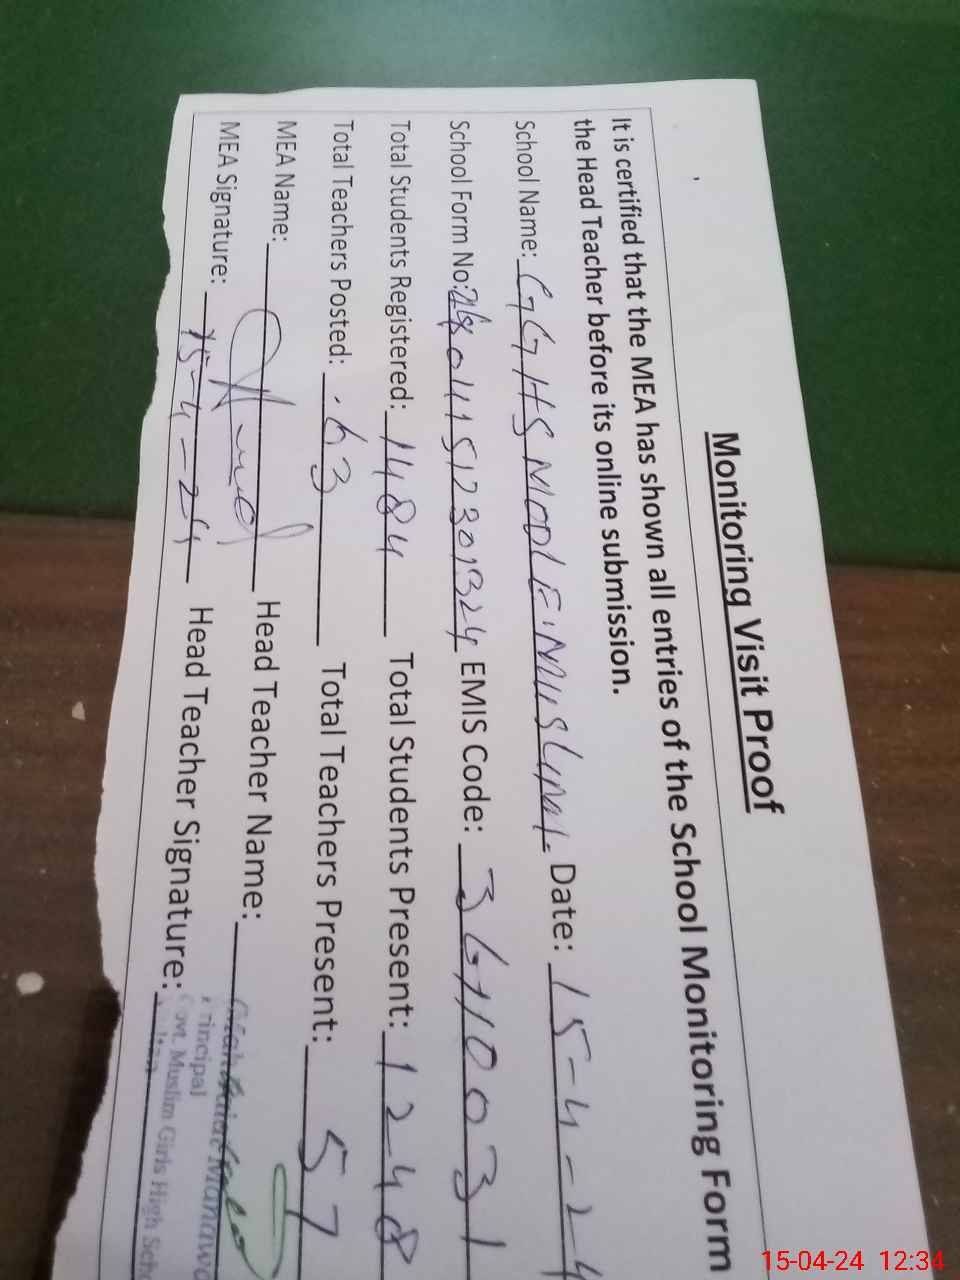 Monitoring Visit Proof
It is certified that the MEA has shown all entries of the School Monitoring Form
the Head Teacher before its online submission.
School Name: GGHS MODLE. MUSLIM. Date: 15-4-24
School Form No: EMIS Code:
Total Students Registered: 1484 Total Students Present: 1248
Total Teachers Posted: 63 Total Teachers Present: 57
MEA Name: Head Teacher Name:
MEA Signature: 15-4-24 Head Teacher Signature:
Principal
Govt. Muslim Girls High Sch
15-04-24 12:34